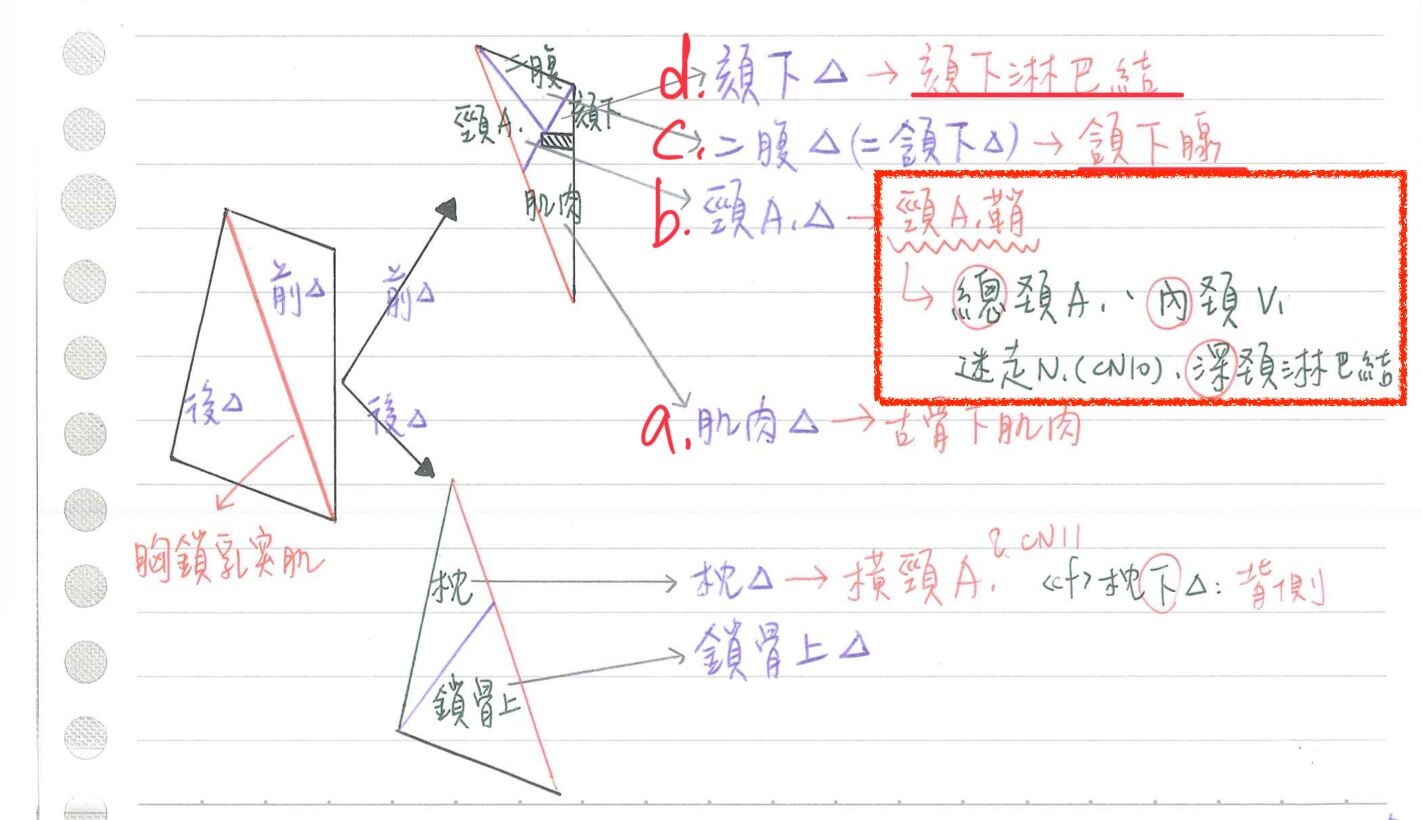 二腹
頸A.
頦下
肌肉
d. 頦下△→頦下淋巴結
c. 二腹△(=頷下△)→頷下腺
b. 頸A.△→頸A.鞘
總頸A.、內頸V.
迷走N.(CN10).深頸淋巴結
a. 肌肉△→舌骨下肌肉
前△
後△
前△
後△
胸鎖乳突肌
枕
鎖骨上
枕△→橫頸A. & CN11 <cf>枕下△:背側
鎖骨上△